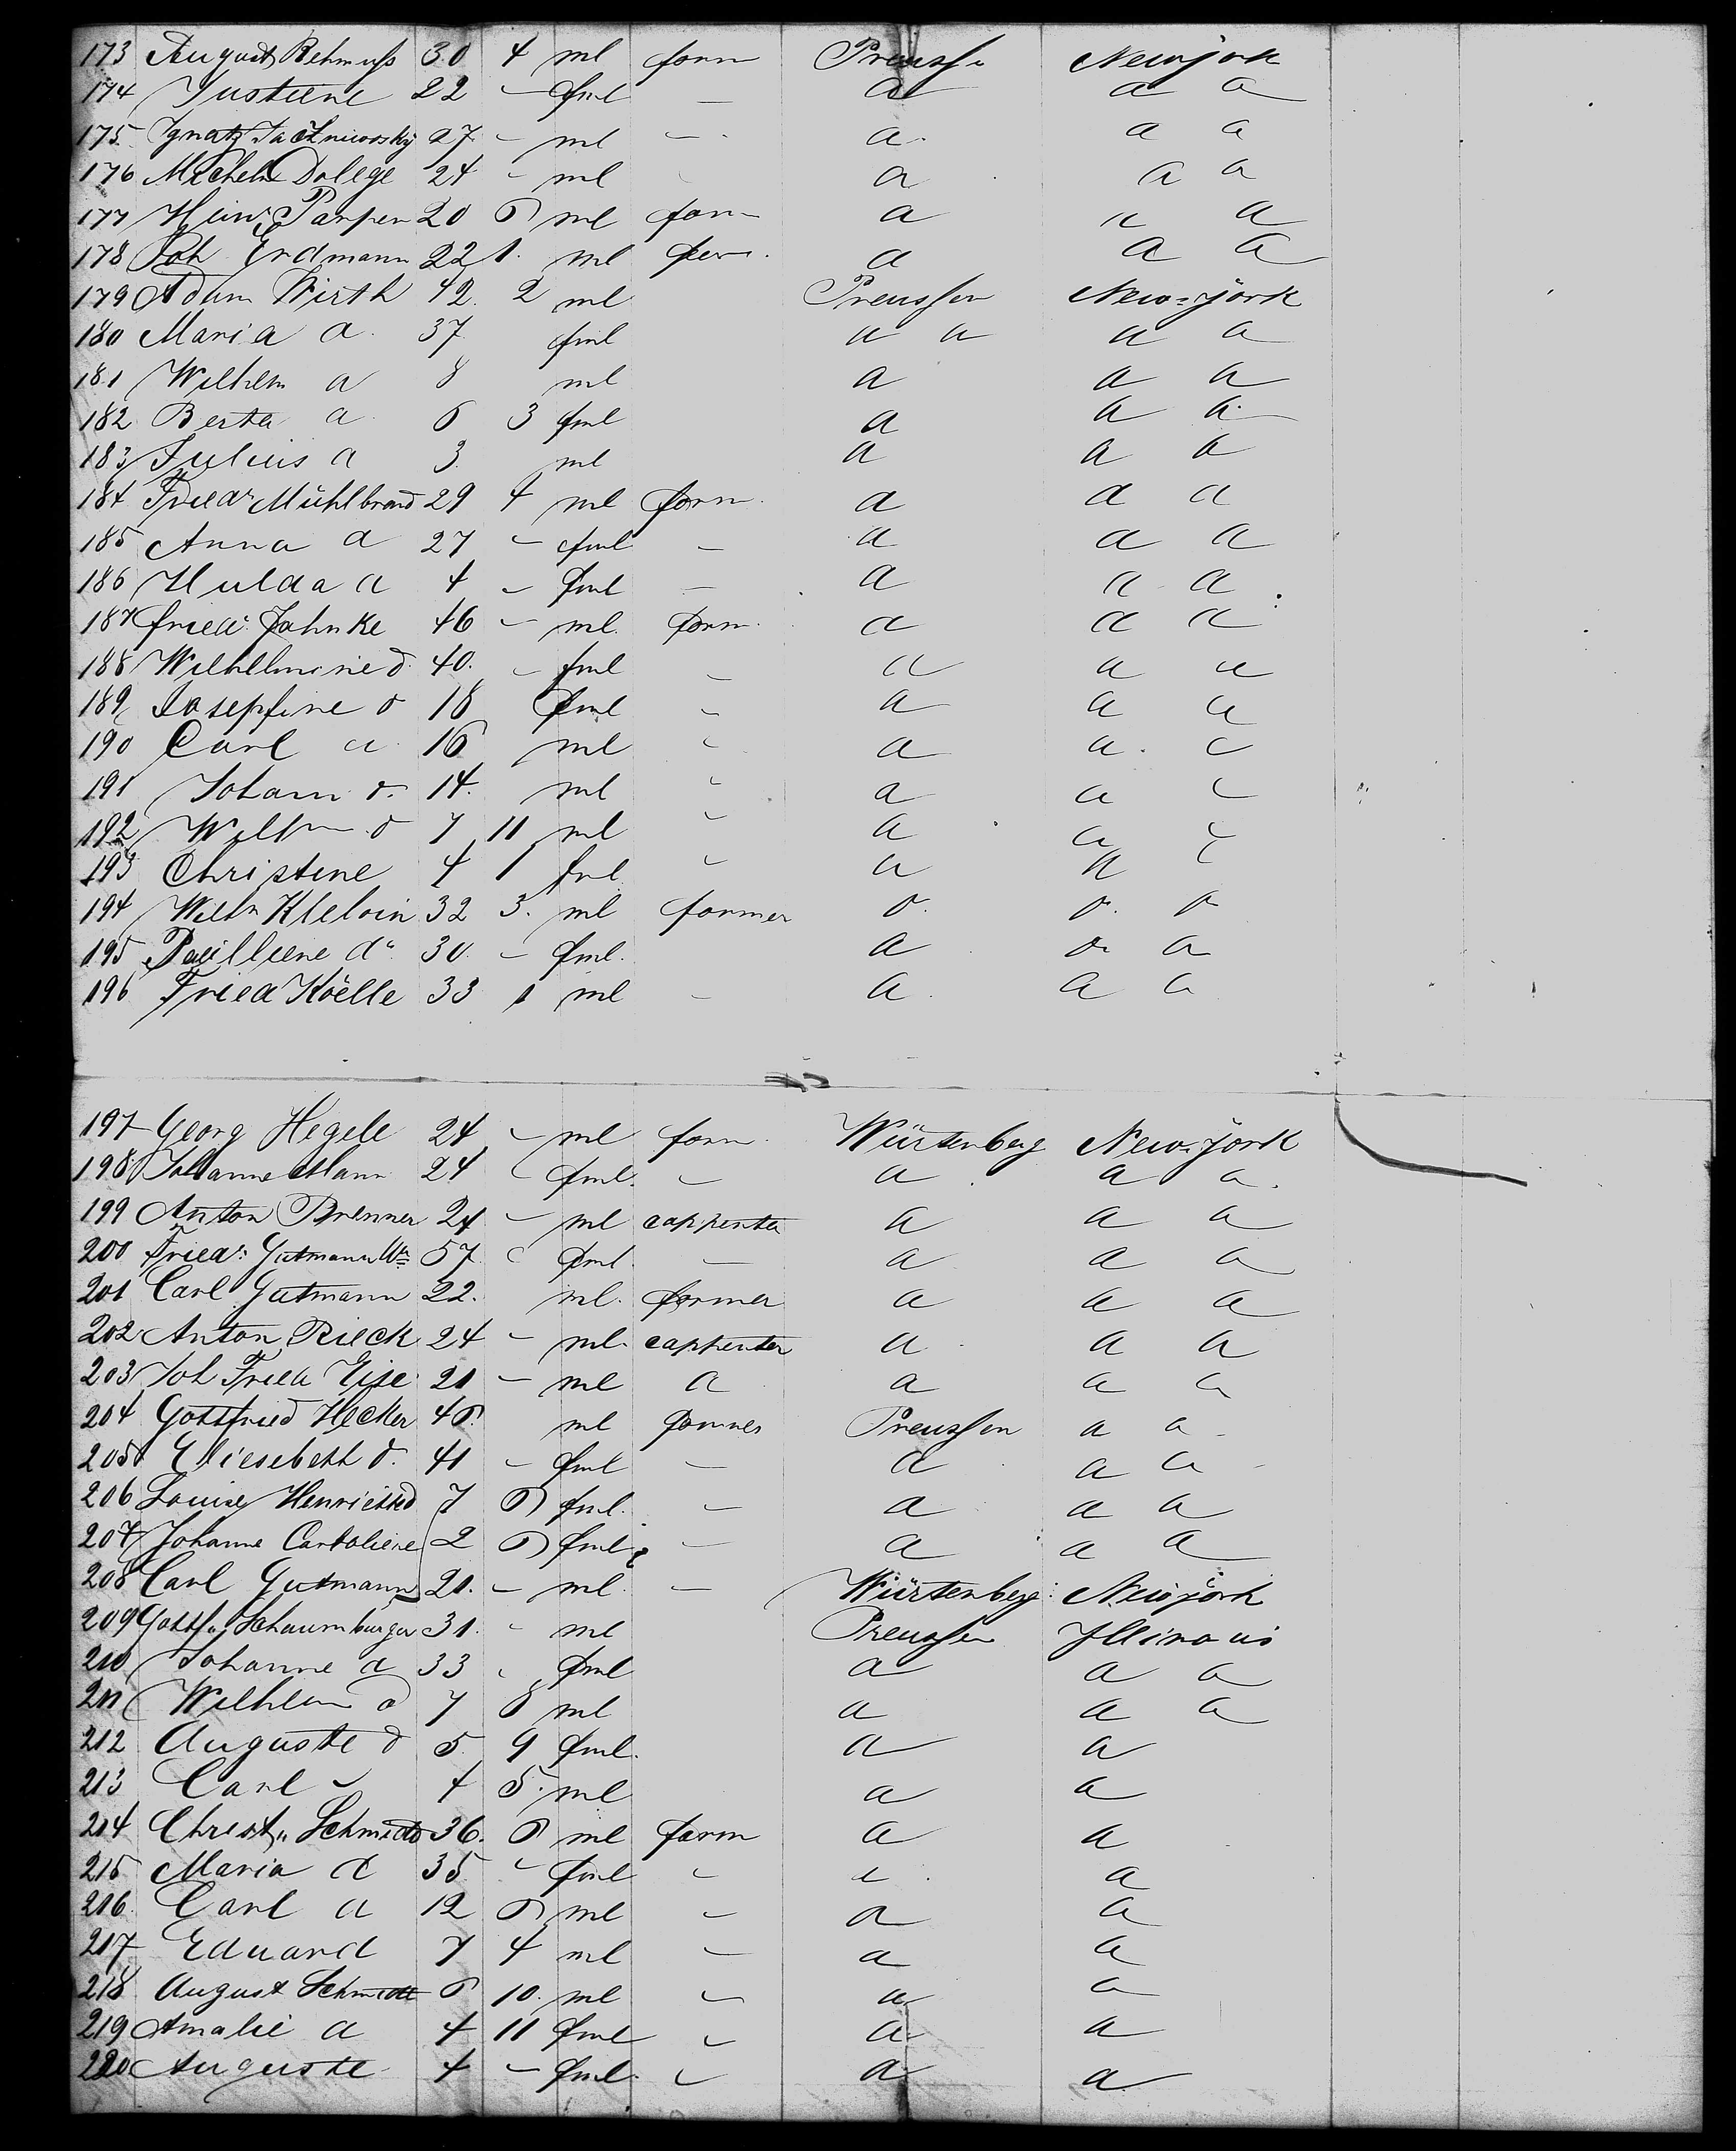 173 August Rehmuss 30 4 ml farm Preussen Newjork
174 Justiene 22 - fml - a a a
175 Ignatz 27 - ml - a a a
176 Michel Dolege 24 - ml - a a a
177 Heinr 20 6 ml farm a a a
178 Joh Erdmann 22 1. ml a a a
179 Adam Wirth 42 2 ml Preussen New-jork
180 Maria a 37 fml a a a a
181 Wilhelm a 8 ml a a a
182 Berta a 6 3 fml a a a
183 Julius a 3 ml a a a
184 Fried Mühlbrand 29 4 ml farm a a a
185 Anna a 27 - fml - a a a
186 Hulda a 4 - fml - a a a
187 fried: Jahnke 46 - ml farm a a a
188 Wilhellmine d 40. - fml - a a a
189 Josepfine d 18 fml - a a a
190 Carl a 16 ml - a a a
191 Johann d 14. ml - a a
192 Wilhm d 7 11 ml - a a
193 Christine 4 1 fml - a a
194 Wilhm 32 3. ml farmer d d d
195 Paulliene d 30. - fml. a a a
196 Fried Köelle 33 1 ml - a a a
197 Georg Hegele 24 - ml farm Würtenberg New-jork
198 Johanne Mann 24 - fml. - a a a
199 Anton Brenner 24 - ml cappenter a a a
200 Fried: Gutmann Wn 57 - fml. - a a a
201 Carl Gutmann 22. ml. farmer a a a
202 Anton Rieck 24 - ml. cappenter a a a
203 Joh Fried 21 - ml a a a a
204 Gottfried Hecker 46 ml farmer Preussen a a
205 Eliesebeth d. 41 - fml - a a a
206 Louise Henriette d 7 6 fml. - a a a
207 Johanne 2 6 fml - a a a
208 Carl Gutmann 21. - ml. - Würtenberg: Newjork
209 Gottf. Schaumburger 31. - ml Preussen Illinois
210 Johanne a 33 - fml a a a
211 Wilhlem d 7 8 ml a a a
212 Auguste d 5. 9 fml. a a
213 Carl - 4 5. ml a a
214 Christ. Schmidt 36. 6 ml farm a a
215 Maria d 35 - fml - a a
216. Carl a 12 6 ml - a a
217 Eduard 7 4 ml - a a
218 August Schmidt 6 10. ml - a a
219 Amalie a 4 11 fml - a a
220 Auguste 4 - fml. - a a